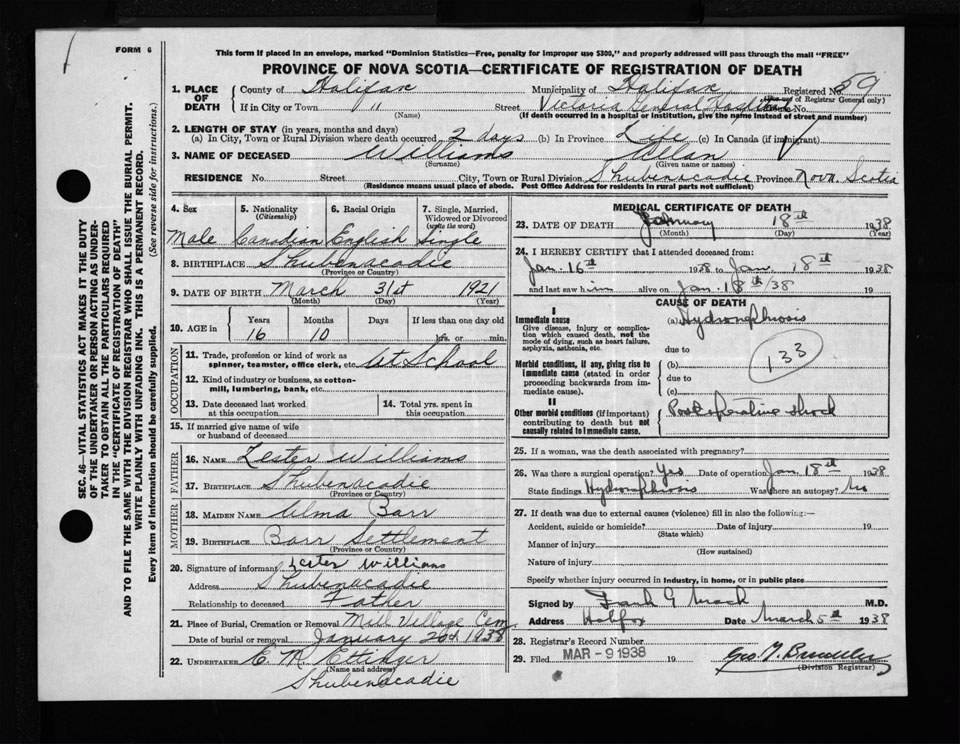 FORM 6
This form if placed in an envelope, marked "Dominion Statistics—Free, penalty for improper use $300," and properly addressed will pass through the mail "FREE"
PROVINCE OF NOVA SCOTIA—CERTIFICATE OF REGISTRATION OF DEATH
SEC. 46—VITAL STATISTICS ACT MAKES IT THE DUTY
OF THE UNDERTAKER OR PERSON ACTING AS UNDER-
TAKER TO OBTAIN ALL THE PARTICULARS REQUIRED
IN THE "CERTIFICATE OF REGISTRATION OF DEATH"
AND TO FILE THE SAME WITH THE DIVISION REGISTRAR WHO SHALL ISSUE THE BURIAL PERMIT.
WRITE PLAINLY WITH UNFADING INK. THIS IS A PERMANENT RECORD.
Every item of information should be carefully supplied. (See reverse side for instructions.)
1. PLACE OF DEATH County of Halifax Municipality of Halifax Registered No. 59
(For use of Registrar General only)
If in City or Town " Street Victoria General Hospital No.
(Name) (If death occurred in a hospital or institution, give the name instead of street and number)
2. LENGTH OF STAY (in years, months and days)
(a) In City, Town or Rural Division where death occurred 2 days (b) In Province Life (c) In Canada (if immigrant)
3. NAME OF DECEASED Williams Allan
(Surname) (Given name or names)
RESIDENCE No. Street City, Town or Rural Division Shubenacadie Province Nova Scotia
(Residence means usual place of abode. Post Office Address for residents in rural parts not sufficient)
4. Sex 5. Nationality (Citizenship) 6. Racial Origin 7. Single, Married, Widowed or Divorced (write the word)
Male Canadian English Single
8. BIRTHPLACE Shubenacadie
(Province or Country)
9. DATE OF BIRTH March 31st 1921
(Month) (Day) (Year)
10. AGE in Years Months Days If less than one day old
16 10 hrs. or min.
OCCUPATION
11. Trade, profession or kind of work as spinner, teamster, office clerk, etc. At School
12. Kind of industry or business, as cotton-mill, lumbering, bank, etc.
13. Date deceased last worked at this occupation 14. Total yrs. spent in this occupation
15. If married give name of wife or husband of deceased
FATHER
16. NAME Lester Williams
17. BIRTHPLACE Shubenacadie
(Province or Country)
MOTHER
18. MAIDEN NAME Alma Barr
19. BIRTHPLACE Barr Settlement
(Province or Country)
20. Signature of informant Lester Williams
Address Shubenacadie
Relationship to deceased Father
21. Place of Burial, Cremation or Removal Mill Village Cem
Date of burial or removal January 20th 1938
22. UNDERTAKER E. M. Ettinger
(Name and address)
Shubenacadie
MEDICAL CERTIFICATE OF DEATH
23. DATE OF DEATH 18th 1938
(Month) (Day) (Year)
24. I HEREBY CERTIFY that I attended deceased from:
Jan. 16th 1938 to Jan. 18th 1938
and last saw him alive on Jan. 18th/38 19
CAUSE OF DEATH
I
Immediate cause (a) Hydronephrosis
Give disease, injury or complication which caused death, not the mode of dying, such as heart failure, asphyxia, asthenia, etc.
due to
133
Morbid conditions, if any, giving rise to immediate cause (stated in order proceeding backwards from immediate cause).
(b)
due to
(c)
II
Other morbid conditions (if important) contributing to death but not causally related to immediate cause.
Post operative shock
25. If a woman, was the death associated with pregnancy?
26. Was there a surgical operation? Yes Date of operation Jan. 18th 1938
State findings Hydronephrosis Was there an autopsy? No
27. If death was due to external causes (violence) fill in also the following:—
Accident, suicide or homicide? Date of injury 19
(State which)
Manner of injury
(How sustained)
Nature of injury
Specify whether injury occurred in industry, in home, or in public place
Signed by Frank G Mack M.D.
Address Halifax Date March 5th 1938
28. Registrar's Record Number
29. Filed MAR - 9 1938 19
(Division Registrar)